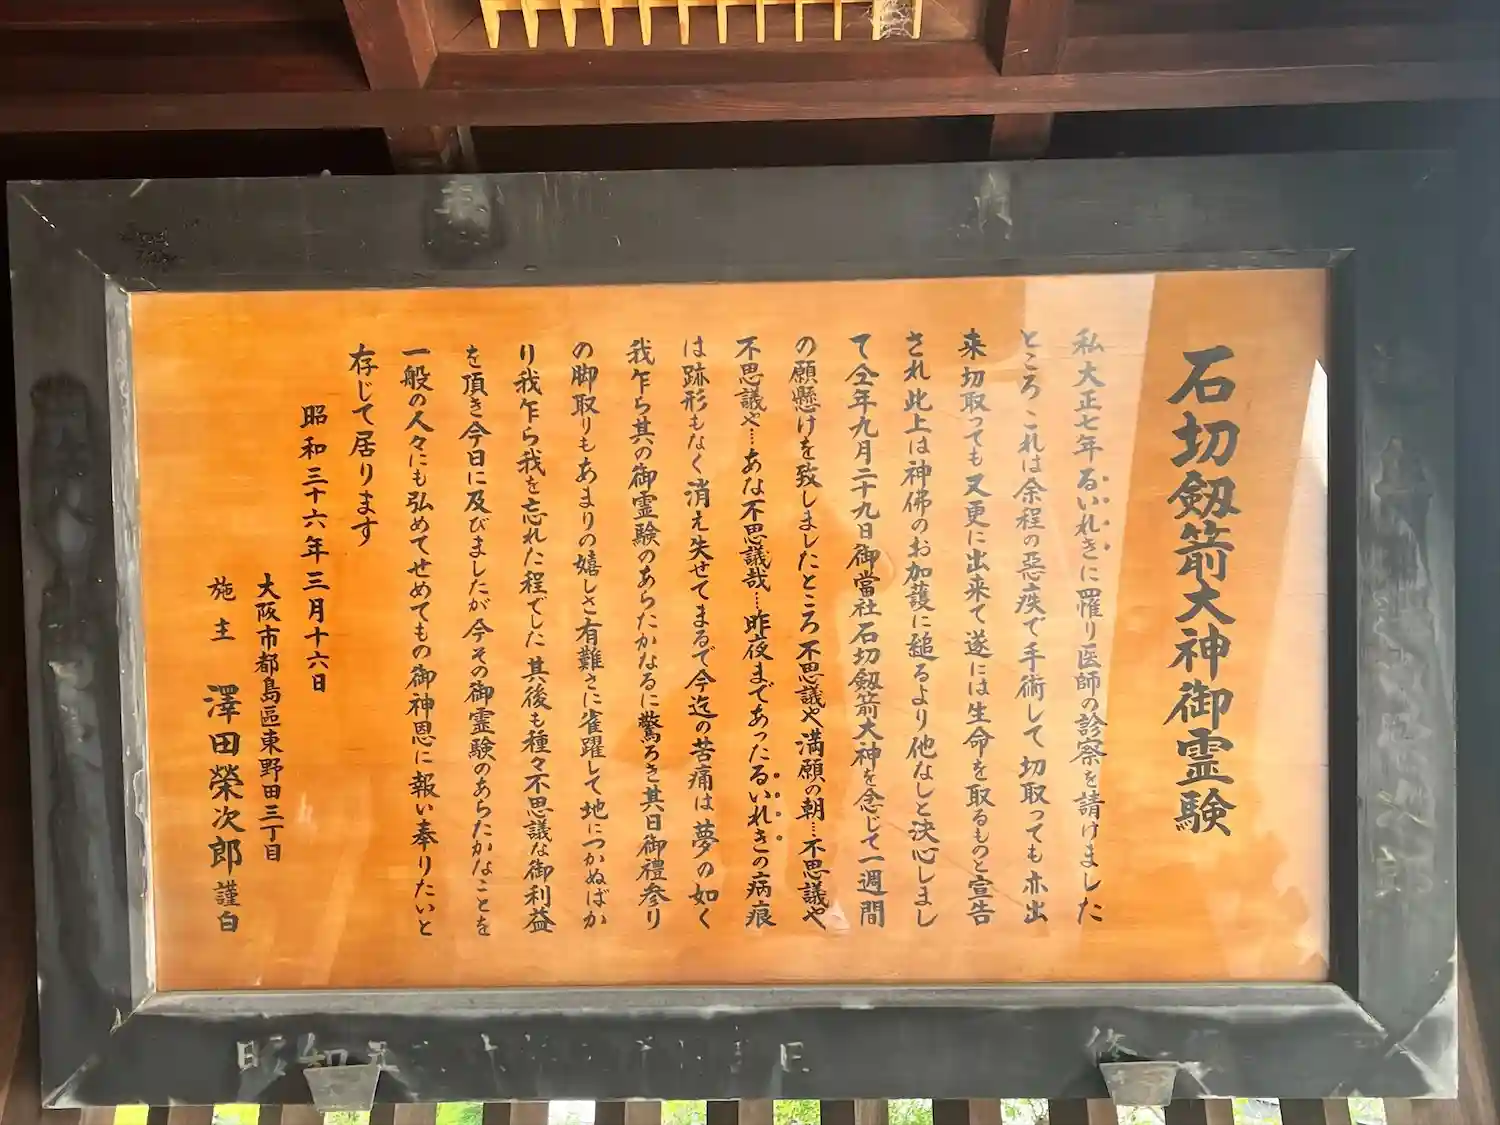 石切劔箭大神御霊験
私大正七年るいれきに罹り医師の診察を請けました
ところ これは余程の悪疾で手術して切取っても亦出
来切取っても又更に出来て遂には生命を取るものと宣告
され此上は神佛のお加護に縋るより他なしと決心しまし
て仝年九月二十九日御當社石切劔箭大神を念じて一週間
の願懸けを致しましたところ不思議や満願の朝…不思議や
不思議や…あな不思議哉…昨夜まであったるいれきの病痕
は跡形もなく消え失せてまるで今迄の苦痛は夢の如く
我乍ら其の御霊験のあらたかなるに驚ろき其日御禮参り
の脚取りもあまりの嬉しさ有難さに雀躍して地につかぬばか
り我乍ら我を忘れた程でした 其後も種々不思議な御利益
を頂き今日に及びましたが今その御霊験のあらたかなことを
一般の人々にも弘めてせめてもの御神恩に報い奉りたいと
存じて居ります
昭和三十六年三月十六日
大阪市都島區東野田三丁目
施主 澤田榮次郎 謹白